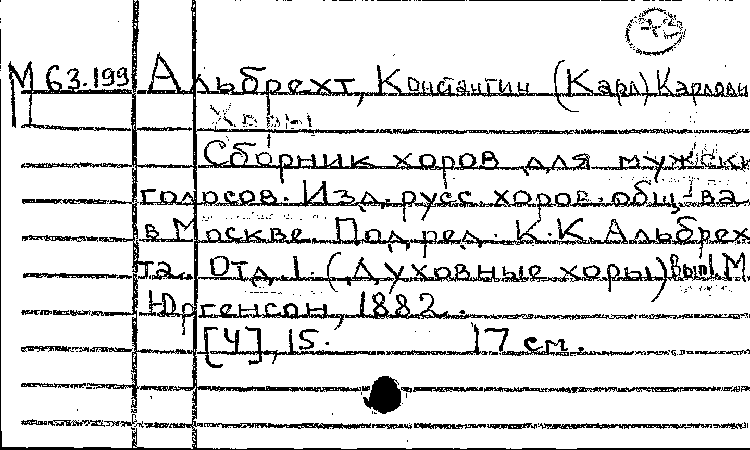 М 63.199 Альбрехт, Константин (Карл) Карлови
Хоры
Сборник хоров для мужски
голосов. Изд. русс. хоров. общ-ва
в Москве. Под ред. К.К. Альбрех
та. Отд. 1. (Духовные хоры) Вып. М.
Юргенсон, 1882.
[4], 15. 17 см.